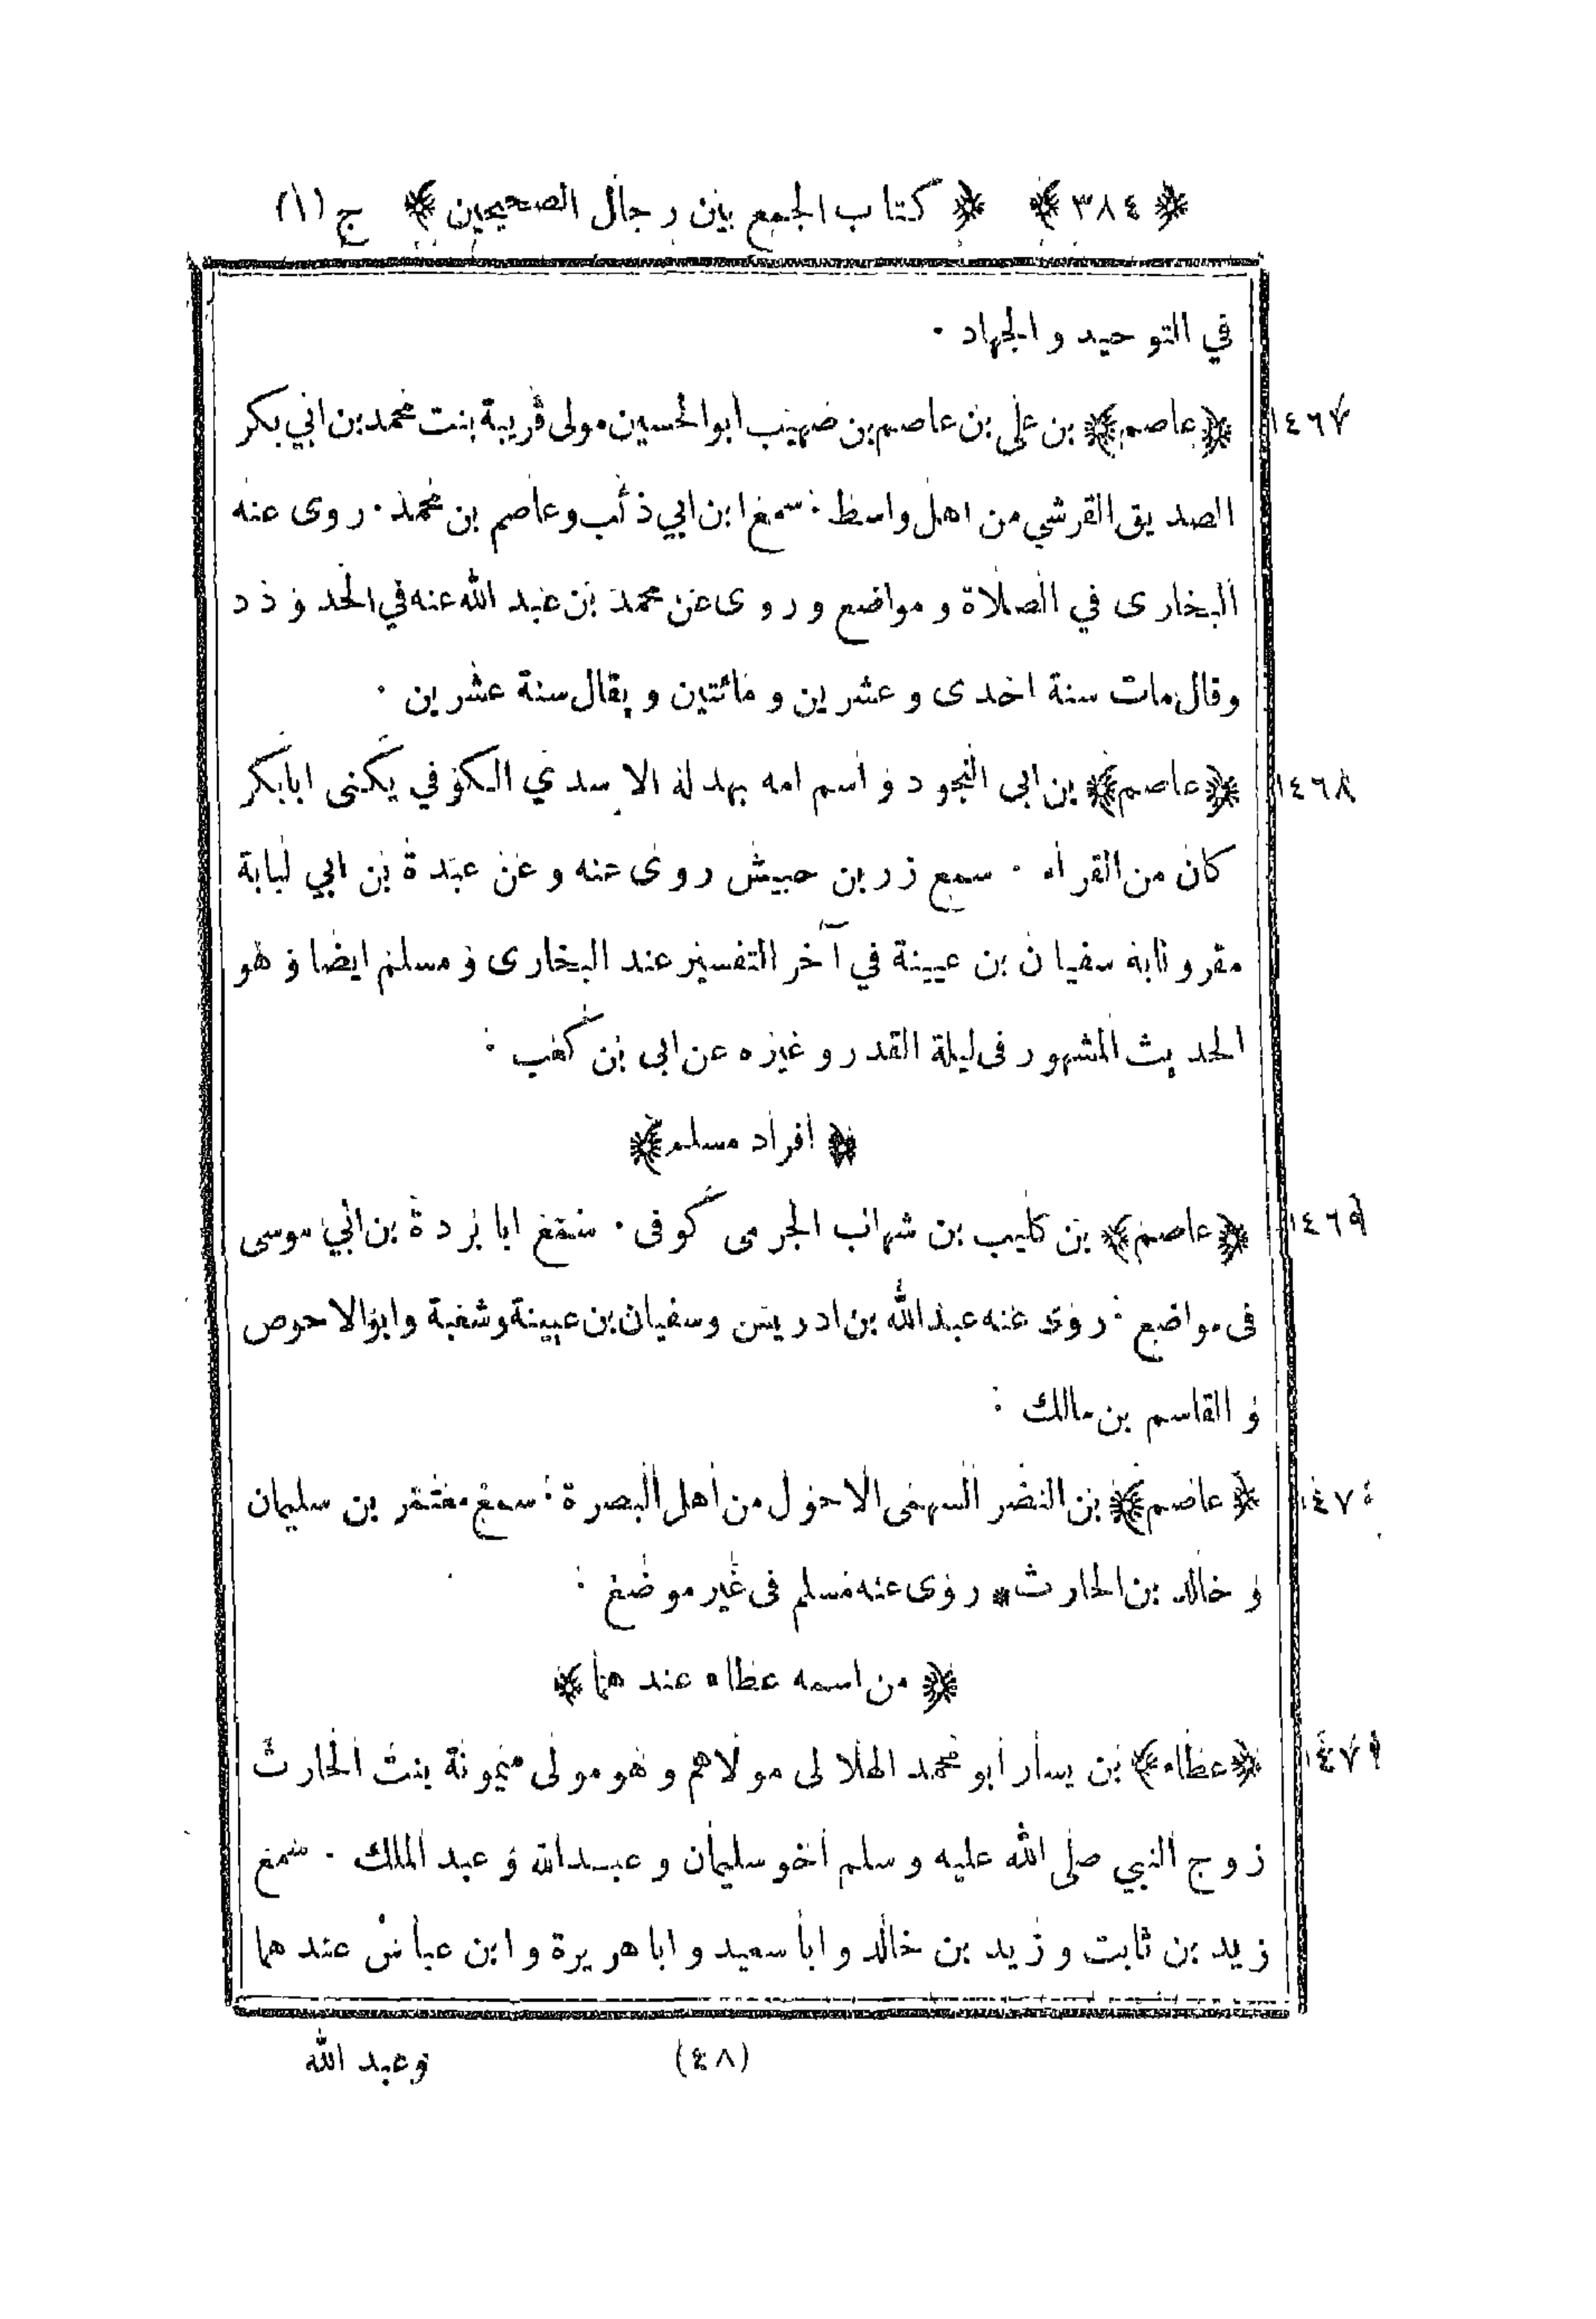 ﴿٣٨٤﴾ ﴿كتاب الجمع بين رجال الصحيحين﴾ ج (١)
في التوحيد والجهاد .
١٤٦٧ ﴿عاصم﴾ بن على بن عاصم بن صهيب ابوالحسين مولى قريبة بنت محمد بن ابي بكر
الصديق القرشي من اهل واسط . سمع ابن ابي ذئب وعاصم بن محمد . روى عنه
البخارى في الصلاة و مواضع و روى عن محمد بن عبد الله عنه في الحدود
وقال مات سنة احدى و عشرين و مائتين و يقال سنة عشرين .
١٤٦٨ ﴿عاصم﴾ بن ابى النجود و اسم امه بهدلة الاسدي الكوفي يكنى ابابكر
كان من القراء . سمع زر بن حبيش روى عنه و عن عبدة بن ابي لبابة
مقرونا به سفيان بن عيينة في آخر التفسير عند البخارى و مسلم ايضا و هو
الحديث المشهور فى ليلة القدر و غيره عن ابى بن كعب :
﴿افراد مسلم﴾
١٤٦٩ ﴿عاصم﴾ بن كليب بن شهاب الجرمى كوفى . سمع ابا بردة بن ابي موسى
فى مواضع . روى عنه عبد الله بن ادريس وسفيان بن عيينة وشعبة وابوالاحوص
و القاسم بن مالك :
١٤٧٠ ﴿عاصم﴾ بن النضر السهمى الاحول من اهل البصرة . سمع معتمر بن سليمان
و خالد بن الحارث * روى عنه مسلم فى غير موضع :
﴿من اسمه عطاء عند هما﴾
١٤٧١ ﴿عطاء﴾ بن يسار ابو محمد الهلالى مولاهم و هو مولى ميمونة بنت الحارث
زوج النبي صلى الله عليه و سلم اخو سليمان و عبد الله و عبد الملك . سمع
زيد بن ثابت و زيد بن خالد و ابا سعيد و ابا هريرة و ابن عباس عند هما
(٤٨) وعبد الله